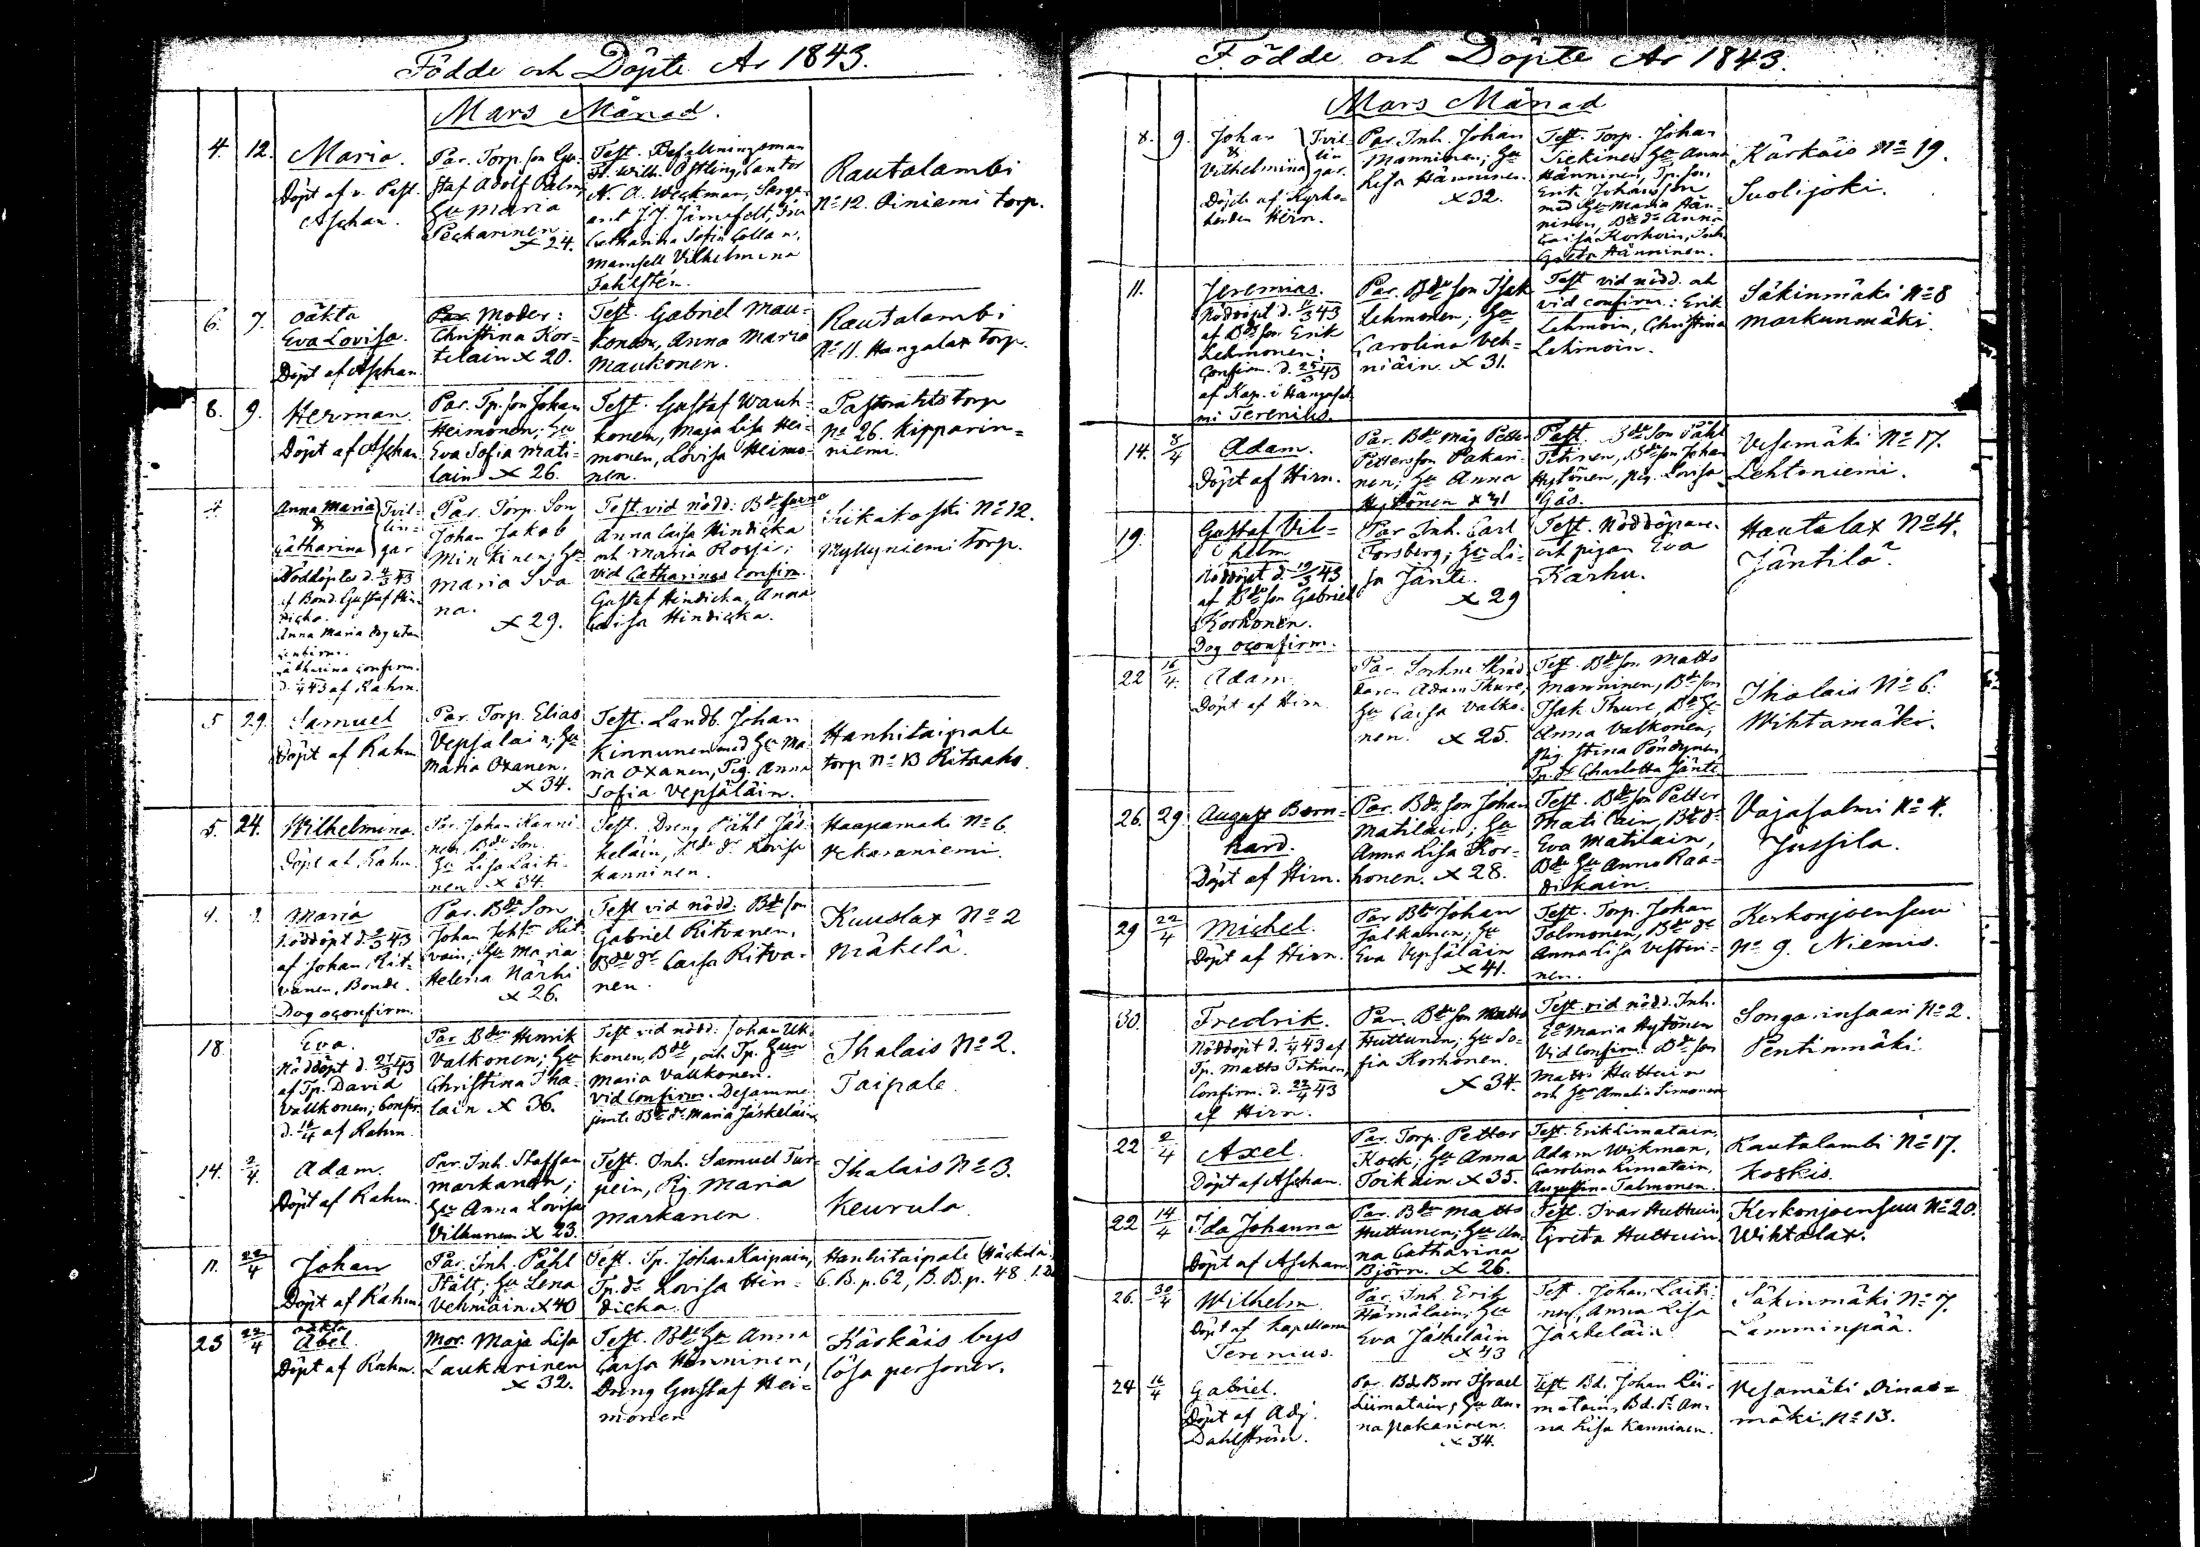 Födde och Döpte År 1843.
Mars Månad.
4. 12. Maria.
Döpt af v. Past.
Aschan.
Par. Torp. son Gu-
staf Adolf Palm,
Hu Maria
Peckarinen
x 24.
Test. Befallningsman
Fr. Wilh. Östling, Cantor
N. A. Weckman, Serge-
ant J. J. Järnefelt, Fru
Catharina Sofia Collan,
Mamsell Vilhelmina
Fahlstén.
Rautalambi
No 12. Oiniemi torp.
6. 7. oäkta
Eva Lovisa.
Döpt af Aschan
Par. Moder:
Christina Kor-
telain x 20.
Test. Gabriel Mau-
konen, Anna Maria
Maukonen.
Rautalambi
No 11. Hangalax torp.
8. 9. Herman.
Döpt af Aschan
Par. Tp. son Johan
Heimonen; Hu
Eva Sofia Mati-
lain x 26.
Test. Gustaf Wauh-
konen, Maja Lisa Hei-
monen, Lovisa Heimo-
nen.
Pastoratstorp
No 26. Kipparin-
niemi.
Anna Maria
&
Catharina
Tvil-
lin-
gar
Nöddöptes d. 4/3 43
af Bond. Gustaf Hin-
dicka.
Anna Maria dog utan
confirm.
Catharina confirm.
af Rahm.
Par. Torp. Son
Johan Jakob
Minkinen; Hu
Maria Sva
na.
x 29.
Test vid nödd: Bde hustru
Anna Caisa Hindicka
och Maria Rossi;
vid Catharinas confirm.
Gustaf Hindicka, Anna
Caisa Hindicka.
Siikakoski No 12.
Myllyniemi torp.
5 29. Samuel
Döpt af Rahm
Par. Torp. Elias
Vepsälain; Hu
Maria Oxanen.
x 34.
Test. Landb. Johan
Kinnunen med Hu Ma-
ria Oxanen, Pig. Anna
Sofia Vepsäläin.
Hanhitaipale
torp No 13 Ritoaho.
5. 24. Wilhelmina.
Döpt af Rahm.
Par. Johan Kanni-
nen, Bde Son.
Hu Lisa Laiti-
nen x 34.
Test. Dreng Påhl Jäs-
keläin, Bde dr Lovisa
Kanninen.
Haapamäki No 6
Vekaraniemi.
Maria
Nöddöpt d. 43
af Johan Rit-
vanen, Bonde.
Dog oconfirm.
Par. Bde Son
Johan Rit
vain; Hu Maria
Helena Närhi
x 26.
Test vid nödd: Bde son
Gabriel Ritvanen,
Bde dr Caisa Ritva-
nen.
Kuuslax No 2
Mäkelä.
18. Eva.
Nöddöpt d. 43
af Tp. David
Valkonen; Confir.
d. af Rahm.
Par Bden Henrik
Valkonen; Hu
Christina Tha-
lain x 36.
Test vid nödd: Johan Uk-
konen, Bde, och Tp. Hun
Maria Valkonen.
Vid Confirm. Desamme
jemte Bde dr Maria Jäskeläin
Thalais No 2.
Taipale.
14. 2/4. Adam.
Döpt af Rahm.
Par. Inh. Staffan
Markanen;
Hu Anna Lovisa
Vilhunen x 23.
Test. Inh. Samuel Tur-
pein, Pig. Maria
Markanen
Thalais No 3.
Keurula.
11. 22/4 Johan
Döpt af Rahm.
Par. Inh. Påhl
Stält; Hu Lena
Vehniäin x 40
Test. Tp. Johan Kaipain,
Tp. dr Lovisa Hin-
dicka.
Hanhitaipale (Häckelä)
C. B. p. 62, B. B. p. 48
23 22/4 oäkta
Abel
Döpt af Rahm.
Mor. Maja Lisa
Laukarinen
x 32.
Test. Bde Hu Anna
Caisa Hänninen,
Dreng Gustaf Hei-
monen
Kärkäis bys
lösa personer.
Födde och Döpte År 1843.
Mars Månad
8. 9. Johan
&
Vilhelmina
Tvil-
lin
gar.
Döpte af Kyrko-
herden Hirn.
Par. Inh. Johan
Manninen; Hu
Lisa Hänninen.
x 32.
Test. Torp. Johan
Tiekinen Hu Anna
Hänninen, Tp. son
Erik Johansson
med Hu Maria Hän-
ninen, Bde dr Anna
Caisa Korhoin, Inh.
Greta Hänninen.
Kärkäis No 19.
Suolijoki.
11. Jeremias.
Nöddöpt d. 43
af Bde son Erik
Lehmonen;
Confirm. d. 25/3 43
af Kap. i Hangasni-
mi Terenius.
Par. Bde son Isak
Lehmonen; Hu
Carolina Veh-
niäin. x 31.
Test vid nödd. och
vid confirm.: Erik
Lehmoin, Christina
Lehmoin.
Säkinmäki No 8
Markunmäki.
14. 8/4 Adam.
Döpt af Hirn.
Par. Bde Måg Petter
Pettersson Pakari-
nen; Hu Anna
Hytönen x 31
Test. Bde Son Påhl
Titinen, Bde son Johan
Hytönen, pig. Lovisa
Gås.
Vesemäki No 17.
Lehtoniemi.
19. Gustaf Vil-
helm
Nöddöpt d. 19/3 43
af Bde son Gabriel
Korhonen.
Dog oconfirm.
Par. Inh. Carl
Forsberg; Hu Li-
sa Jänte.
x 29
Test. Nöddöparen
och pigan Eva
Karhu.
Hautalax No 4.
Jäntilä?
22 16/4. Adam.
Döpt af Hirn.
Par. Sockne Skräd-
daren Adam Thure;
Hu Caisa Valko-
nen. x 25.
Test. Bde son Matts
Manninen, Bde son
Isak Thure, Bde Hu
Anna Valkonen,
Pig. Stina Pöndynen
Tp. dr Charlotta Jänte
Thalais No 6.
Wihtamäki.
26. 29. August Bern-
hard.
Döpt af Hirn.
Par. Bde son Johan
Matilain; Hu
Anna Lisa Kor-
honen. x 28.
Test. Bde son Petter
Matilain, Bde dr
Eva Matilain,
Bde Hu Anna Raa-
tikain.
Vajasalmi No 4.
Jussila.
29 22/4 Michel.
Döpt af Hirn.
Par Bde Johan
Jalkanen; Hu
Eva Vepsäläin
x 41.
Test. Torp. Johan
Talmonen, Bde dr
Anna Lisa Vesteri-
nen.
Kerkonjoensuu
No 9. Niemis.
30. Fredrik.
Nöddöpt d. 43 af
Tp. Matts Titinen,
Confirm. d. 22/4 43
af Hirn.
Par. Bde son Matts
Huttunen; Hu So-
fia Korhonen.
x 34.
Test. vid nödd. Inh.
Ea Maria Hytönen
Vid Confirm: Bde son
Matts Huttuin
och Hu Amalia Simonen
Songarinsaari No 2.
Pentinmäki.
22 2/4 Axel.
Döpt af Aschan.
Par. Torp. Petter
Kock; Hu Anna
Toikain x 35.
Test. Erik Limatain,
Adam Wikman,
Carolina Limatain,
Augustina Talmonen.
Rautalambi No 17.
Koskis.
22 14/4 Ida Johanna
Döpt af Aschan.
Par. Bde Matts
Huttunen; Hu An-
na Catharina
Björn. x 26.
Test. Ivar Huttuin,
Greta Huttuin
Kerkonjoensuu No 20.
Wihtalax.
26. 30/4 Wilhelm.
Döpt af Kapellanen
Terenius.
Par. Inh. Erik
Hämäläin; Hu
Eva Jäskeläin
x 43
Test. Johan Laiti-
nen, Anna Lisa
Jäskeläin
Säkinmäki No 7.
Lamminpää.
24 16/4 Gabriel.
Döpt af Adj.
Dahlström.
Par. Bd. Bror Israel
Liimatain; Hu An-
na Pakarinen.
x 34.
Test Bd. Johan Lii-
matain, Bd. dr An-
na Lisa Kanninen.
Vesamäki Oinas-
mäki, No 13.